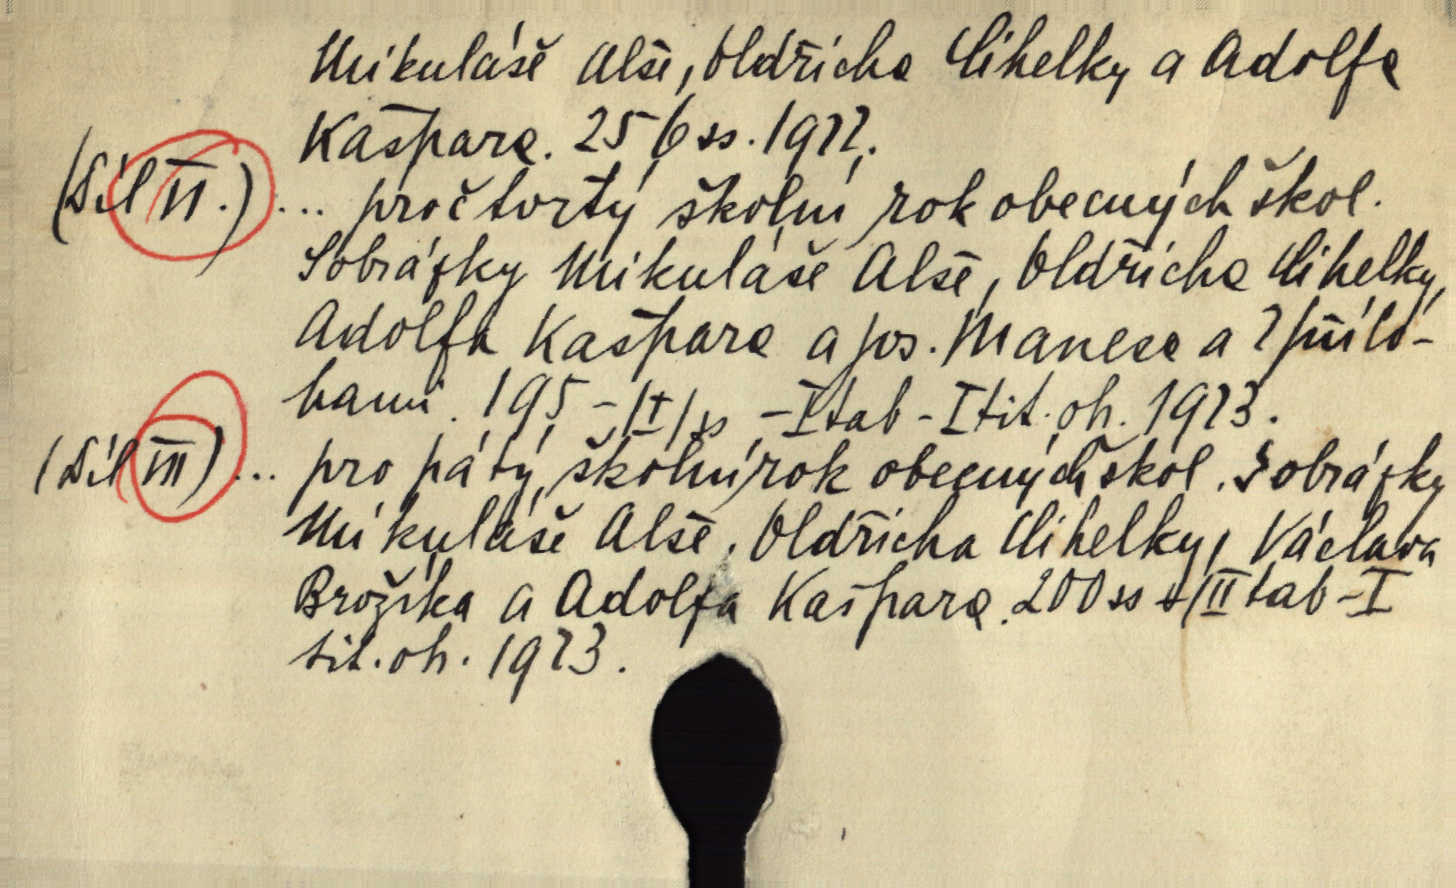 Mikuláše Alše, Oldřicha Cihelky a Adolfa
Kašpara. 256 ss. 1922.
(Díl II.) ... pro čtvrtý školní rok obecných škol.
S obrázky Mikuláše Alše, Oldřicha Cihelky,
Adolfa Kašpara a Jos. Manesa a 2 přílo-
hami. 195 - /I/ ss - I tab - I tit. ob. 1923.
(Díl III) ... pro pátý školní rok obecných škol. S obrázky
Mikuláše Alše, Oldřicha Cihelky, Václava
Brožíka a Adolfa Kašpara. 200 ss + II tab - I
tit. ob. 1923.